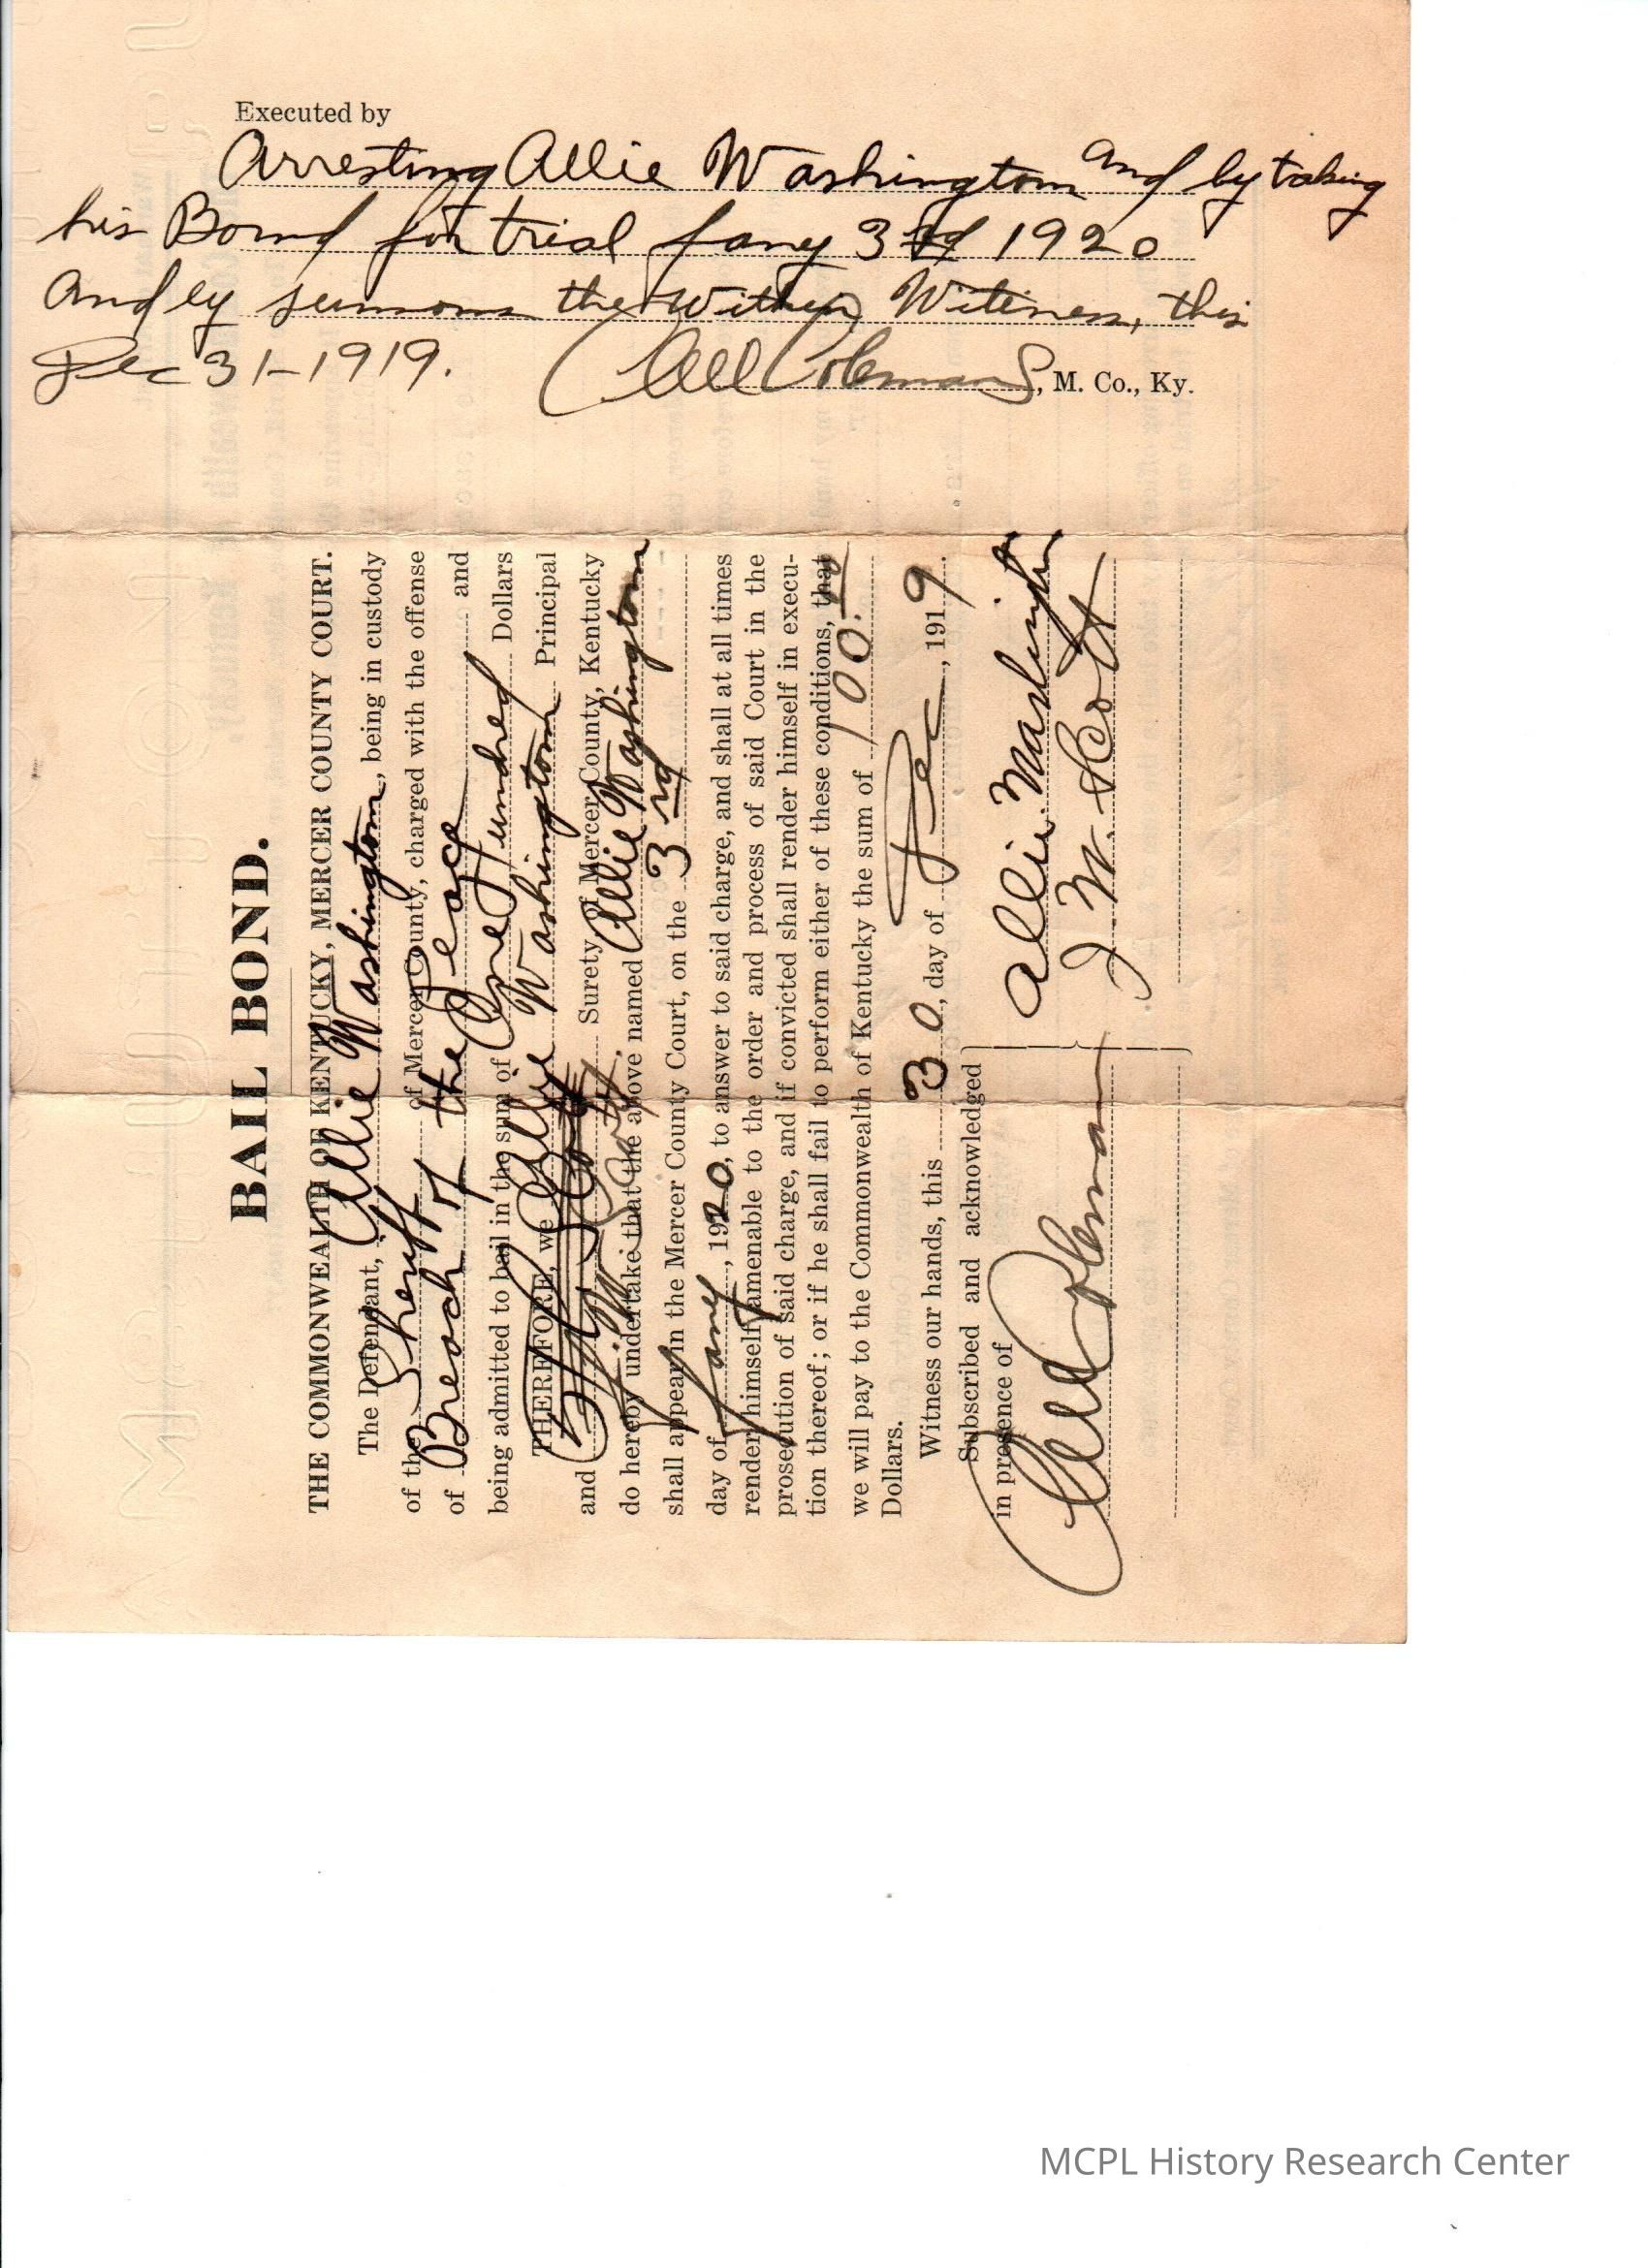 Executed by
Arresting Allie Washington and by taking
his Bond for trial Jany 3rd 1920
and by summons the Within Witiness, this
Dec 31-1919. Coleman S, M. Co., Ky.
BAIL BOND.
THE COMMONWEALTH OF KENTUCKY, MERCER COUNTY COURT.
The Defendant, Allie Washington, being in custody
of the Sheriff of Mercer County, charged with the offense
of Breach of the Peace and
being admitted to bail in the sum of One Hundred Dollars
THEREFORE, we Allie Washington Principal
and J. W. Scott, Surety, of Mercer County, Kentucky
do hereby undertake that the above named Allie Washington
shall appear in the Mercer County Court, on the 3rd
day of Jany, 1920, to answer to said charge, and shall at all times
render himself amenable to the order and process of said Court in the
prosecution of said charge, and if convicted shall render himself in execu-
tion thereof; or if he shall fail to perform either of these conditions, that
we will pay to the Commonwealth of Kentucky the sum of 100.
Dollars.
Witness our hands, this 30, day of Dec, 1919.
Subscribed and acknowledged
in presence of
Allie Washington
Coleman
J. W. Scott
MCPL History Research Center